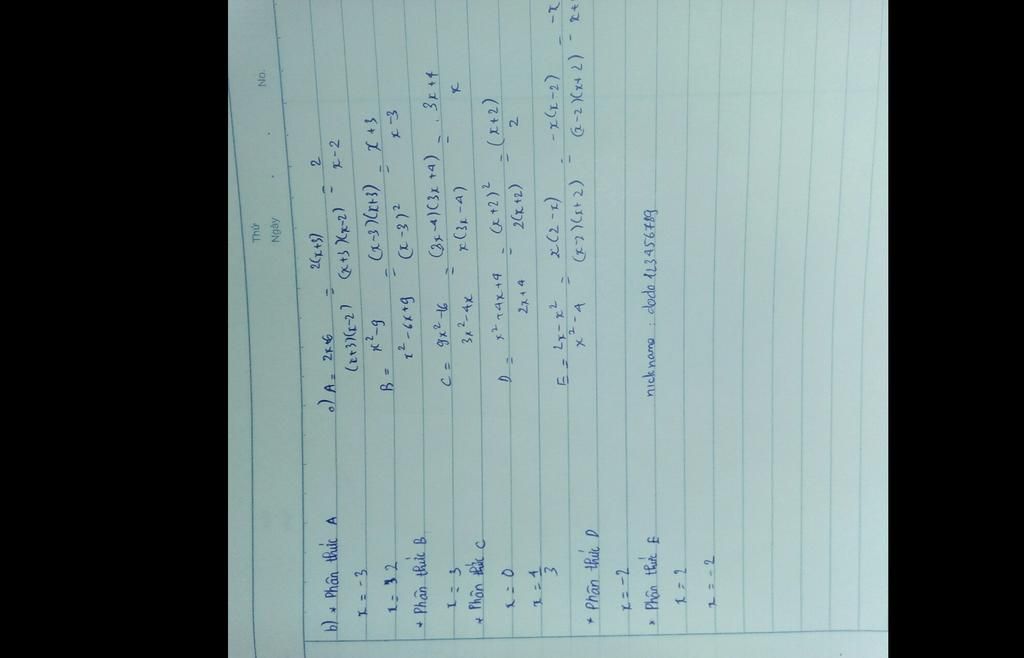 Thứ
Ngày
No.
a) A = 2x+6 / (x+3)(x-2) = 2(x+3) / (x+3)(x-2) = 2 / x-2
B = x²-9 / x²-6x+9 = (x-3)(x+3) / (x-3)² = x+3 / x-3
C = 9x²-16 / 3x²-4x = (3x-4)(3x+4) / x(3x-4) = 3x+4 / x
D = x²+4x+4 / 2x+4 = (x+2)² / 2(x+2) = (x+2) / 2
E = 2x-x² / x²-4 = x(2-x) / (x-2)(x+2) = -x(x-2) / (x-2)(x+2) = -x / x+
nickname: dodo123456789
b) * Phân thức A
x = -3
x = 2
* Phân thức B
x = 3
* Phân thức C
x = 0
x = 4/3
* Phân thức D
x = -2
* Phân thức E
x = 2
x = -2